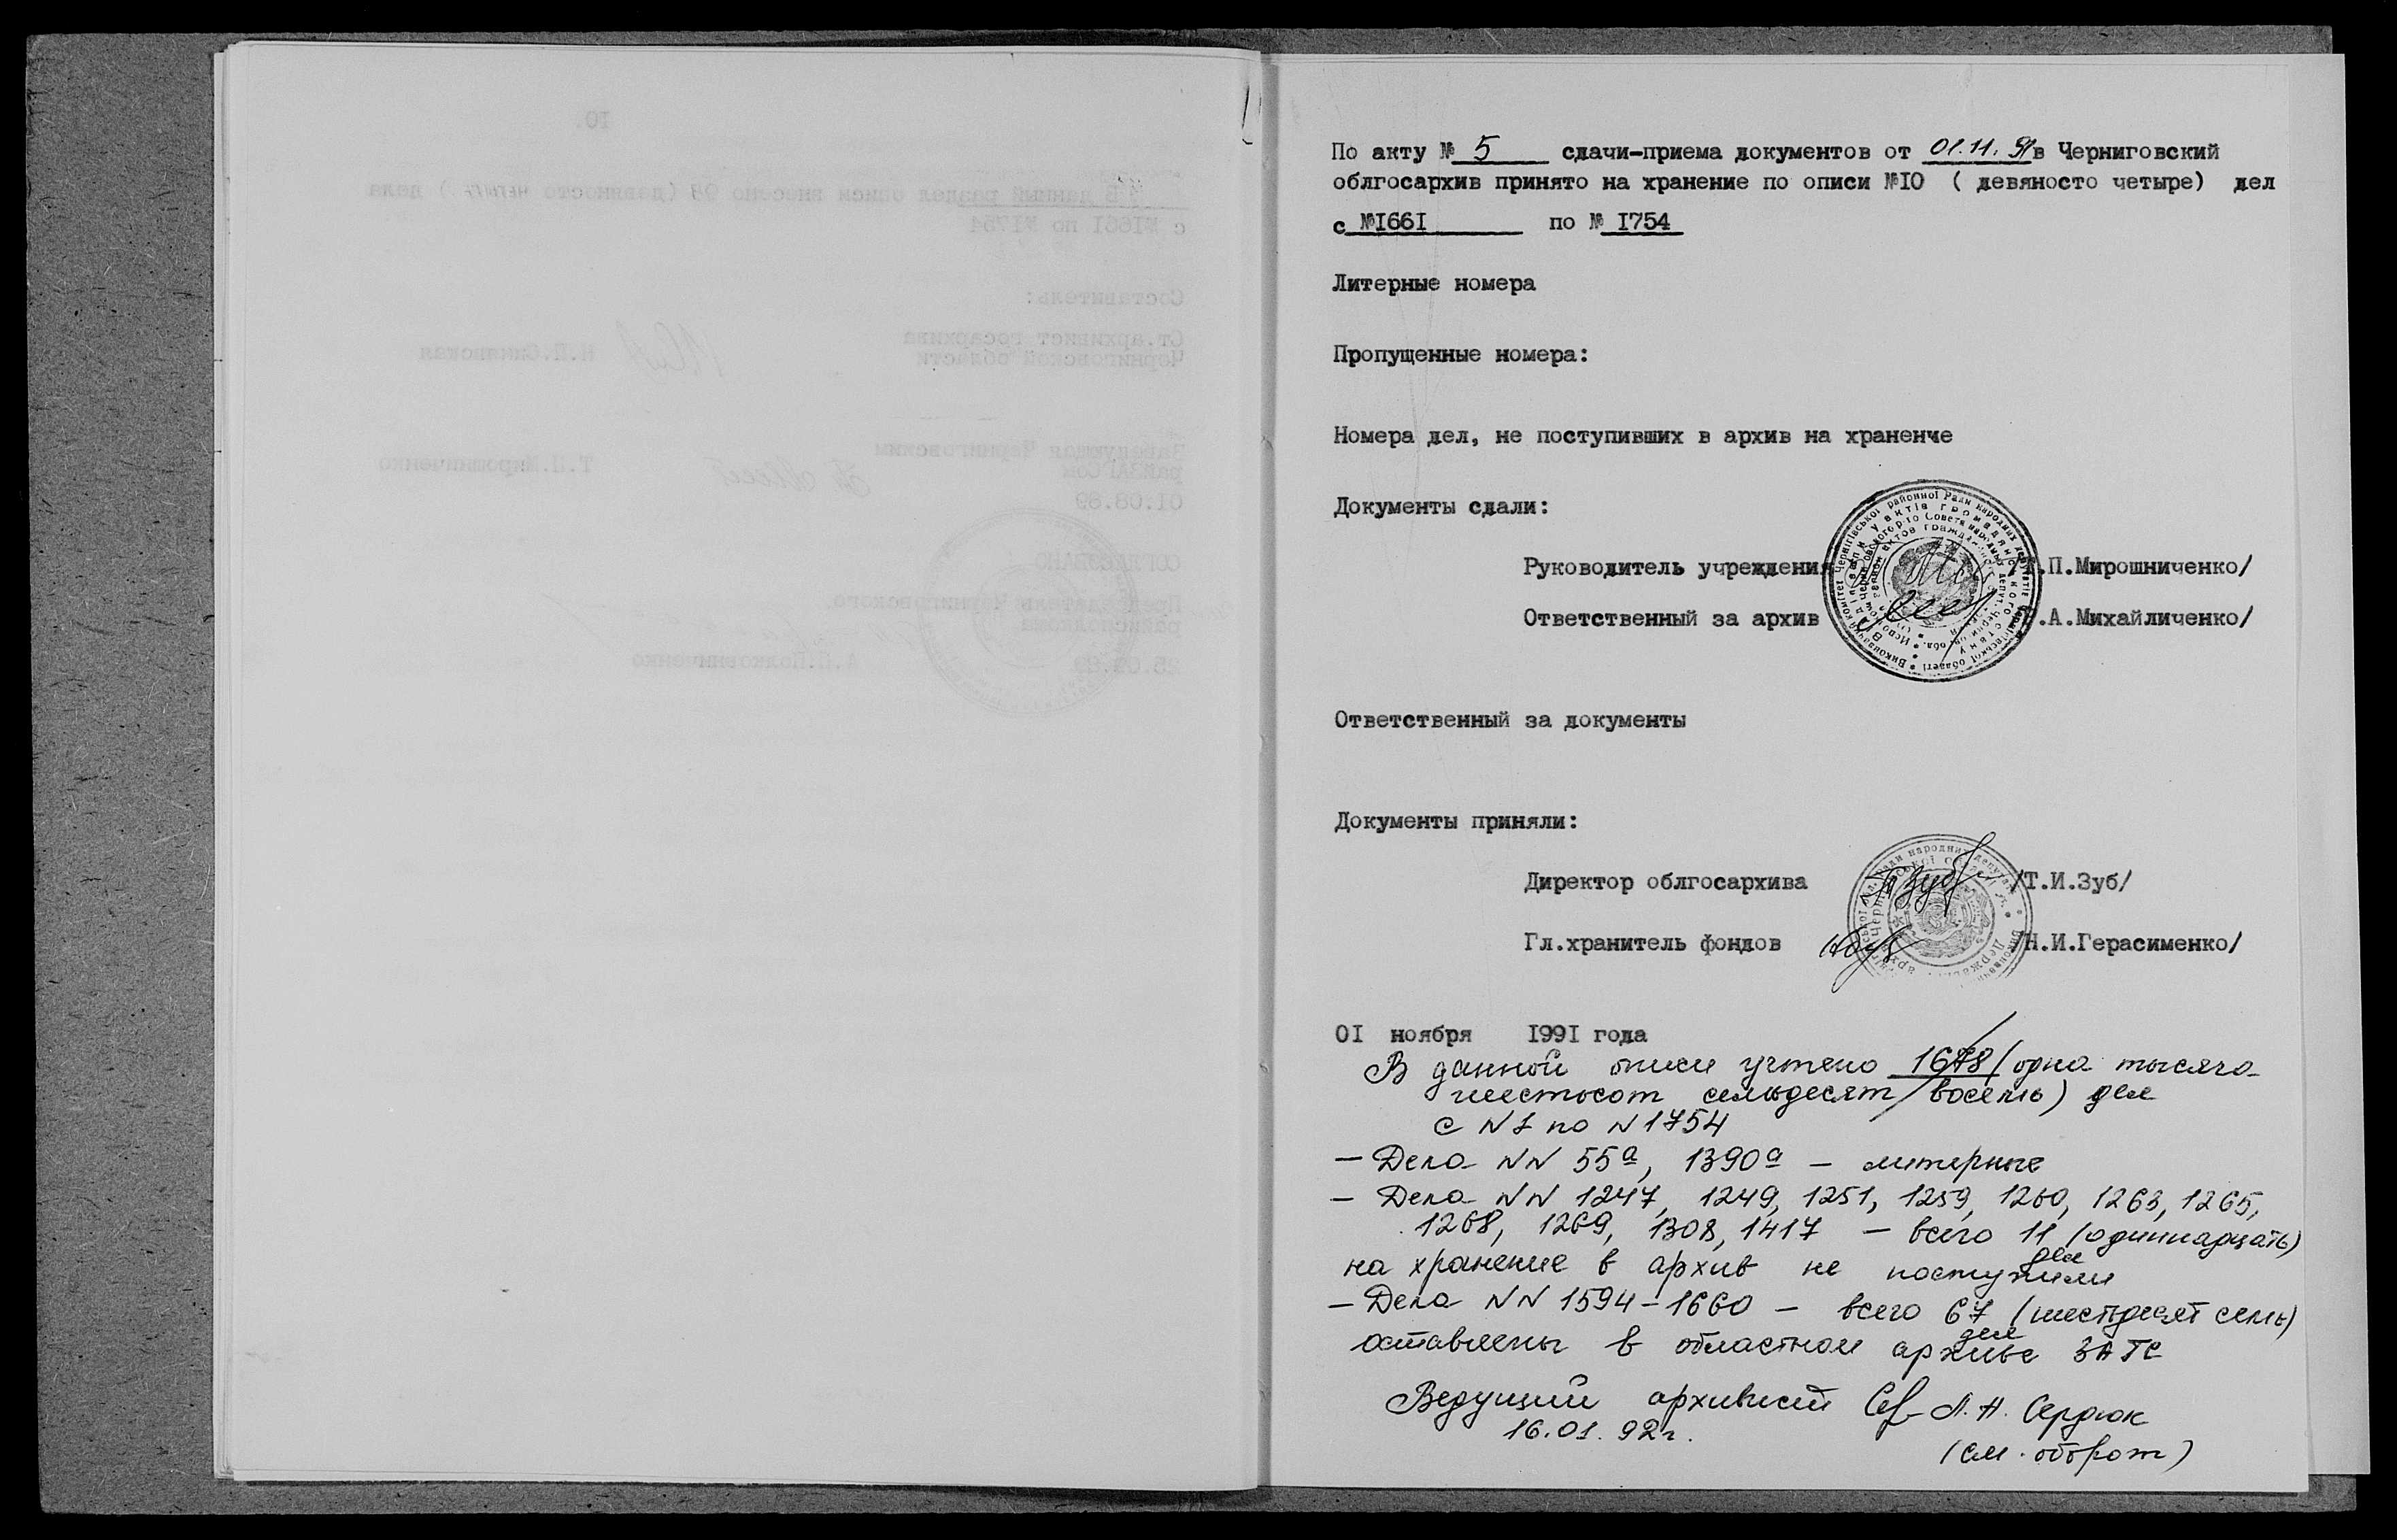 По акту № 5 сдачи-приема документов от 01.11.91 в Черниговский
облгосархив принято на хранение по описи №I0 ( девяносто четыре) дел
с №I66I по № I754
Литерные номера
Пропущенные номера:
Номера дел, не поступивших в архив на храненче
Документы сдали:
Руководитель учреждения .П.Мирошниченко/
Ответственный за архив .А.Михайличенко/
Ответственный за документы
Документы приняли:
Директор облгосархива /Т.И.Зуб/
Гл.хранитель фондов /Н.И.Герасименко/
0I ноября I99I года
В данной описи учтено 1678 (одна тысяча
шестьсот семьдесят восемь) дел
с N 1 по N 1754
— Дела NN 55а, 1390а — литерные
— Дела NN 1247, 1249, 1251, 1259, 1260, 1263, 1265,
1268, 1269, 1308, 1417 — всего 11 (одиннадцать)
дел
на хранение в архив не поступили
— Дела NN 1594-1660 — всего 67 (шестьдесят семь)
дел
оставлены в областном архиве ЗАГС
Ведущий архивист Л.Н. Сердюк
16.01.92г.
(см. оборот)